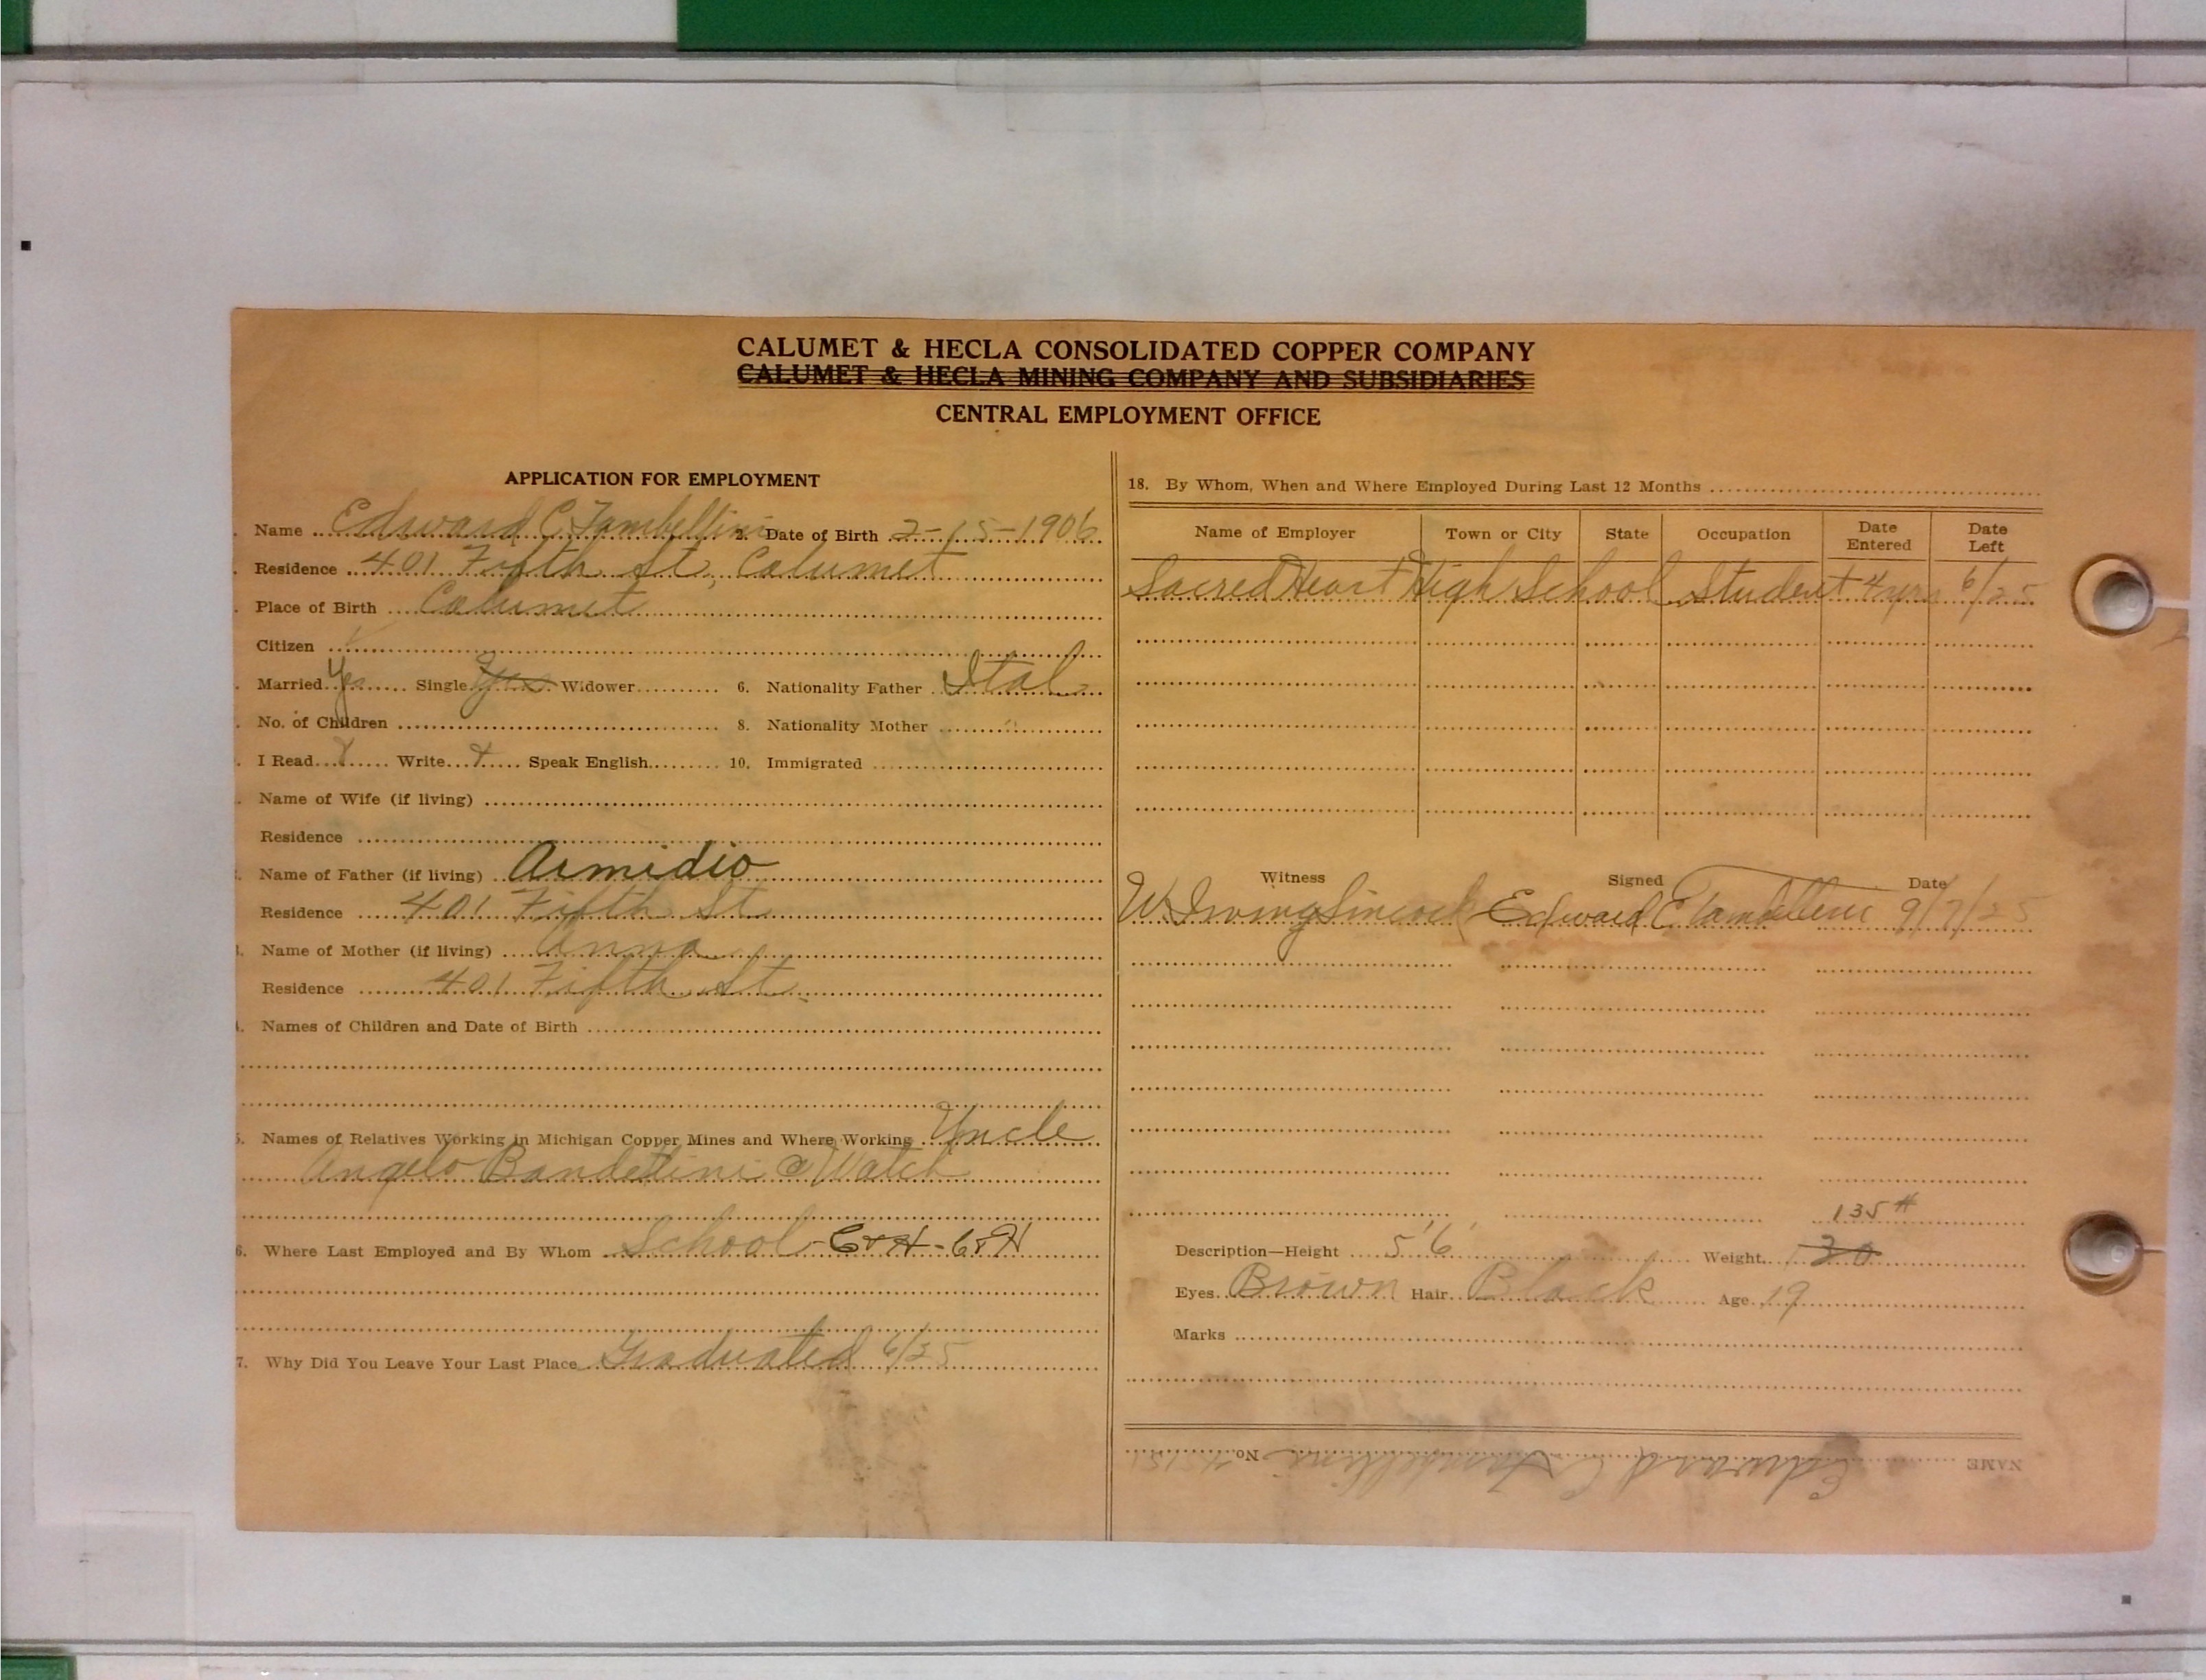 CALUMET & HECLA CONSOLIDATED COPPER COMPANY
CALUMET & HECLA MINING COMPANY AND SUBSIDIARIES
CENTRAL EMPLOYMENT OFFICE
APPLICATION FOR EMPLOYMENT
. Name Edward C. Tambellini 2. Date of Birth 2-15-1906
. Residence 401 Fifth St, Calumet
. Place of Birth Calumet
Citizen
. Married Yes Single Yes Widower 6. Nationality Father Ital
. No. of Children 8. Nationality Mother "
. I Read Y Write Y Speak English 10. Immigrated
. Name of Wife (if living)
Residence
. Name of Father (if living) Armidio
Residence 401 Fifth St
. Name of Mother (if living) Anna
Residence 401 Fifth St.
. Names of Children and Date of Birth
5. Names of Relatives Working in Michigan Copper Mines and Where Working Uncle
Angelo Bandettini @ Watch
6. Where Last Employed and By Whom School - C & H - C & H
7. Why Did You Leave Your Last Place Graduated 6/25
18. By Whom, When and Where Employed During Last 12 Months
Name of Employer Town or City State Occupation Date Entered Date Left
Sacred Heart High School Student 4 yrs 6/25
Witness Signed Date
W. Irving Sincock Edward C Tambellini 9/7/25
135 #
Description—Height 5' 6' Weight 130
Eyes Brown Hair Black Age 19
Marks
NAME Edward C Tambellini No.